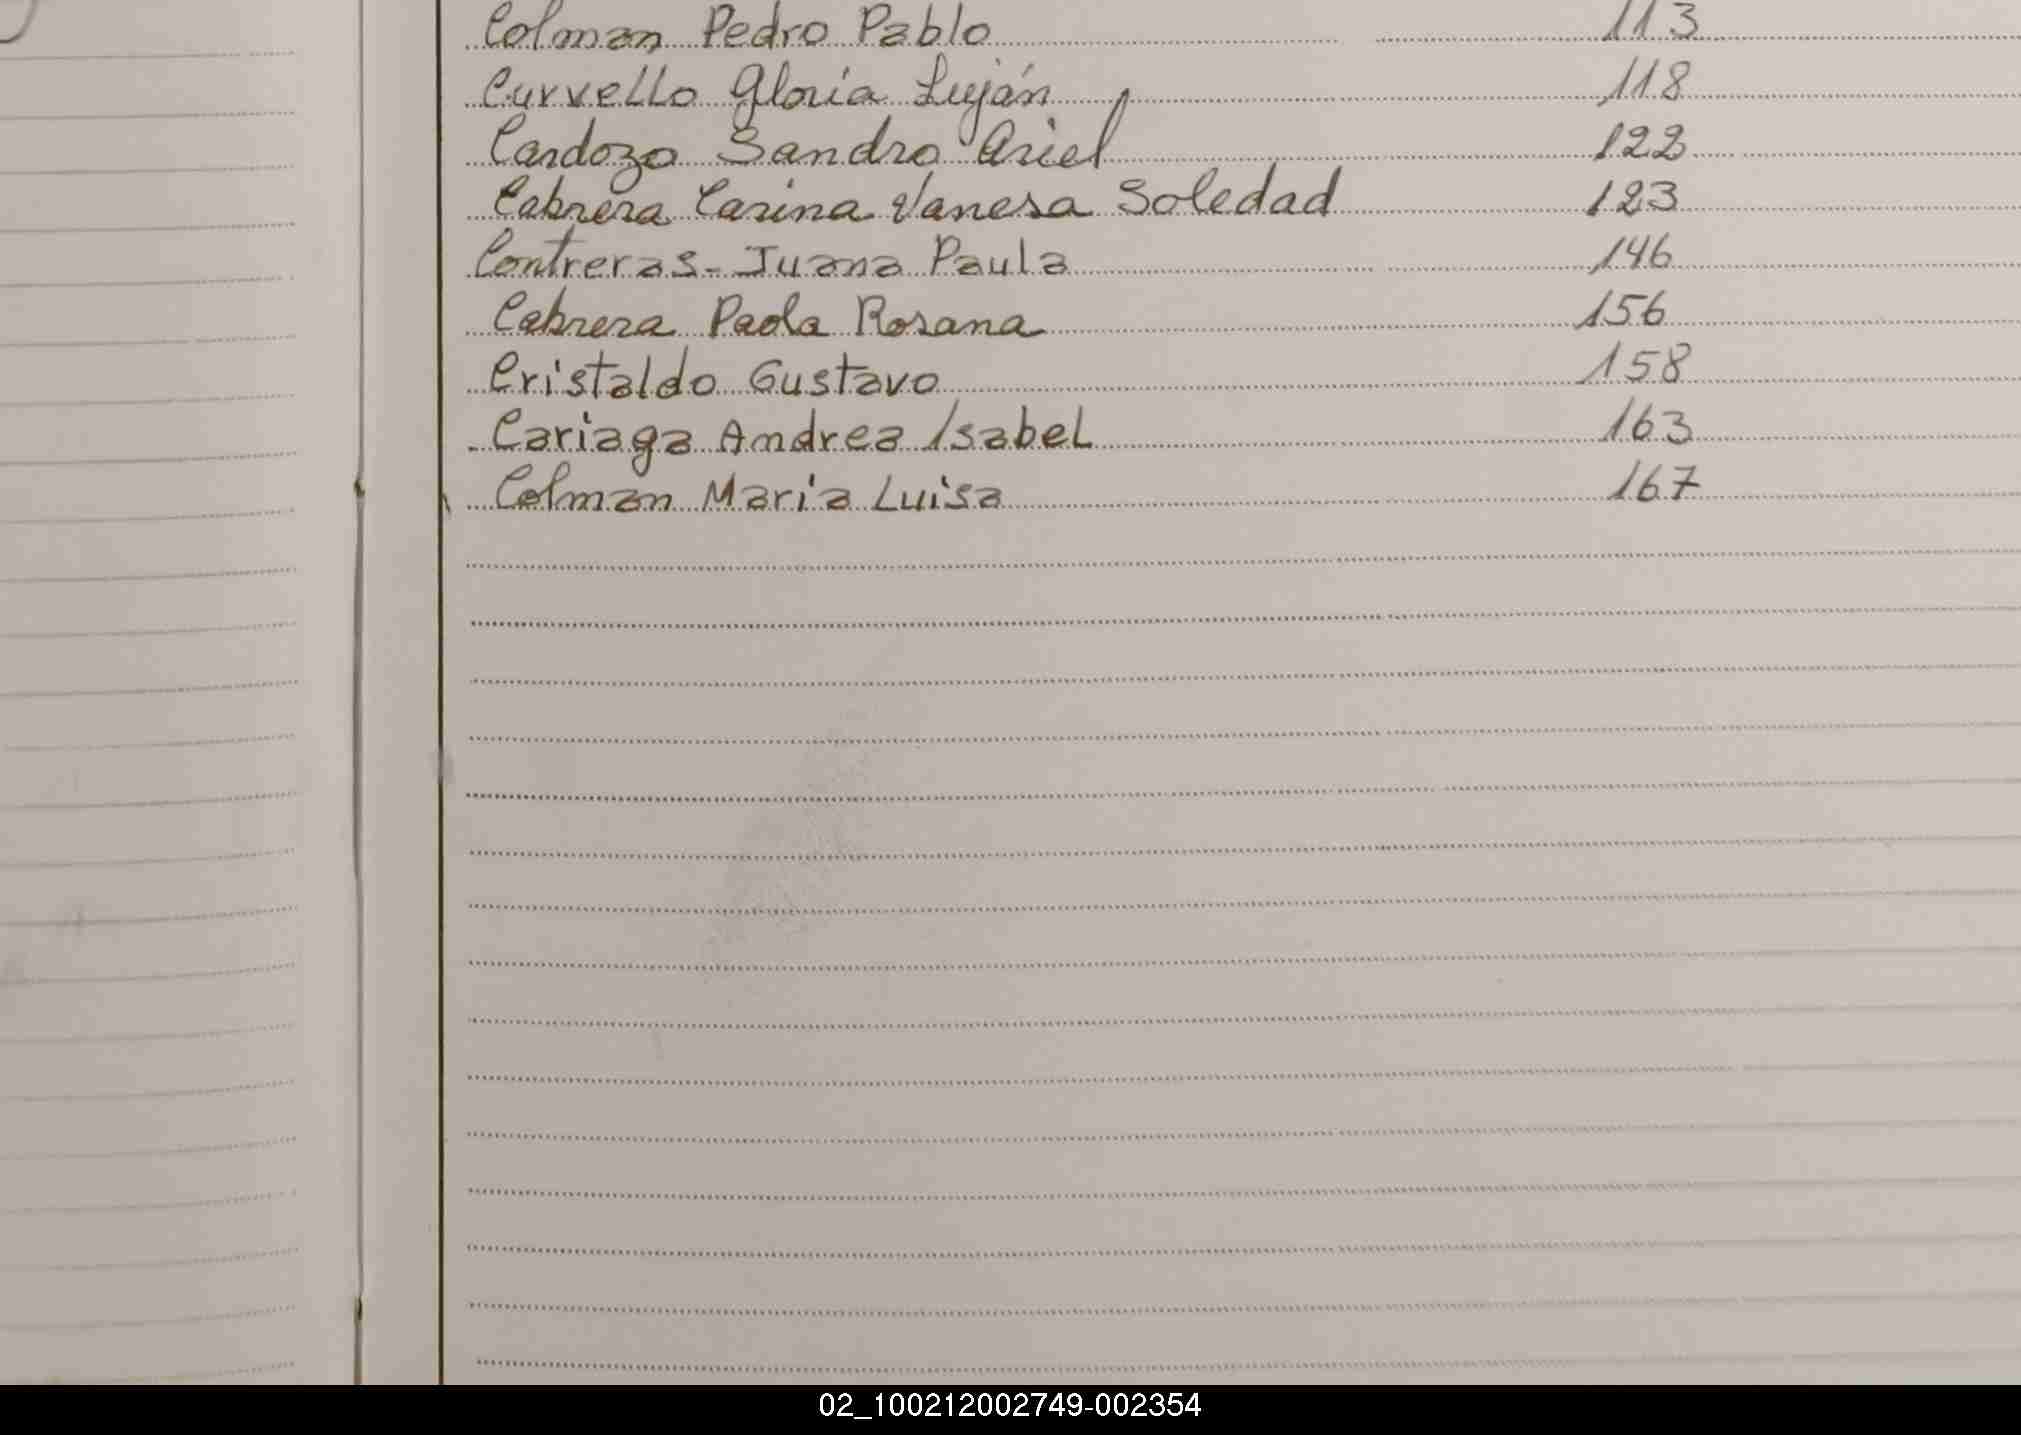 Colman Pedro Pablo 113
Curvello Gloria Luján 118
Cardozo Sandro Ariel 122
Cabrera Carina Vanesa Soledad 123
Contreras - Juana Paula 146
Cabrera Paola Rosana 156
Cristaldo Gustavo 158
Cariaga Andrea Isabel 163
Colman Maria Luisa 167
02_100212002749-002354